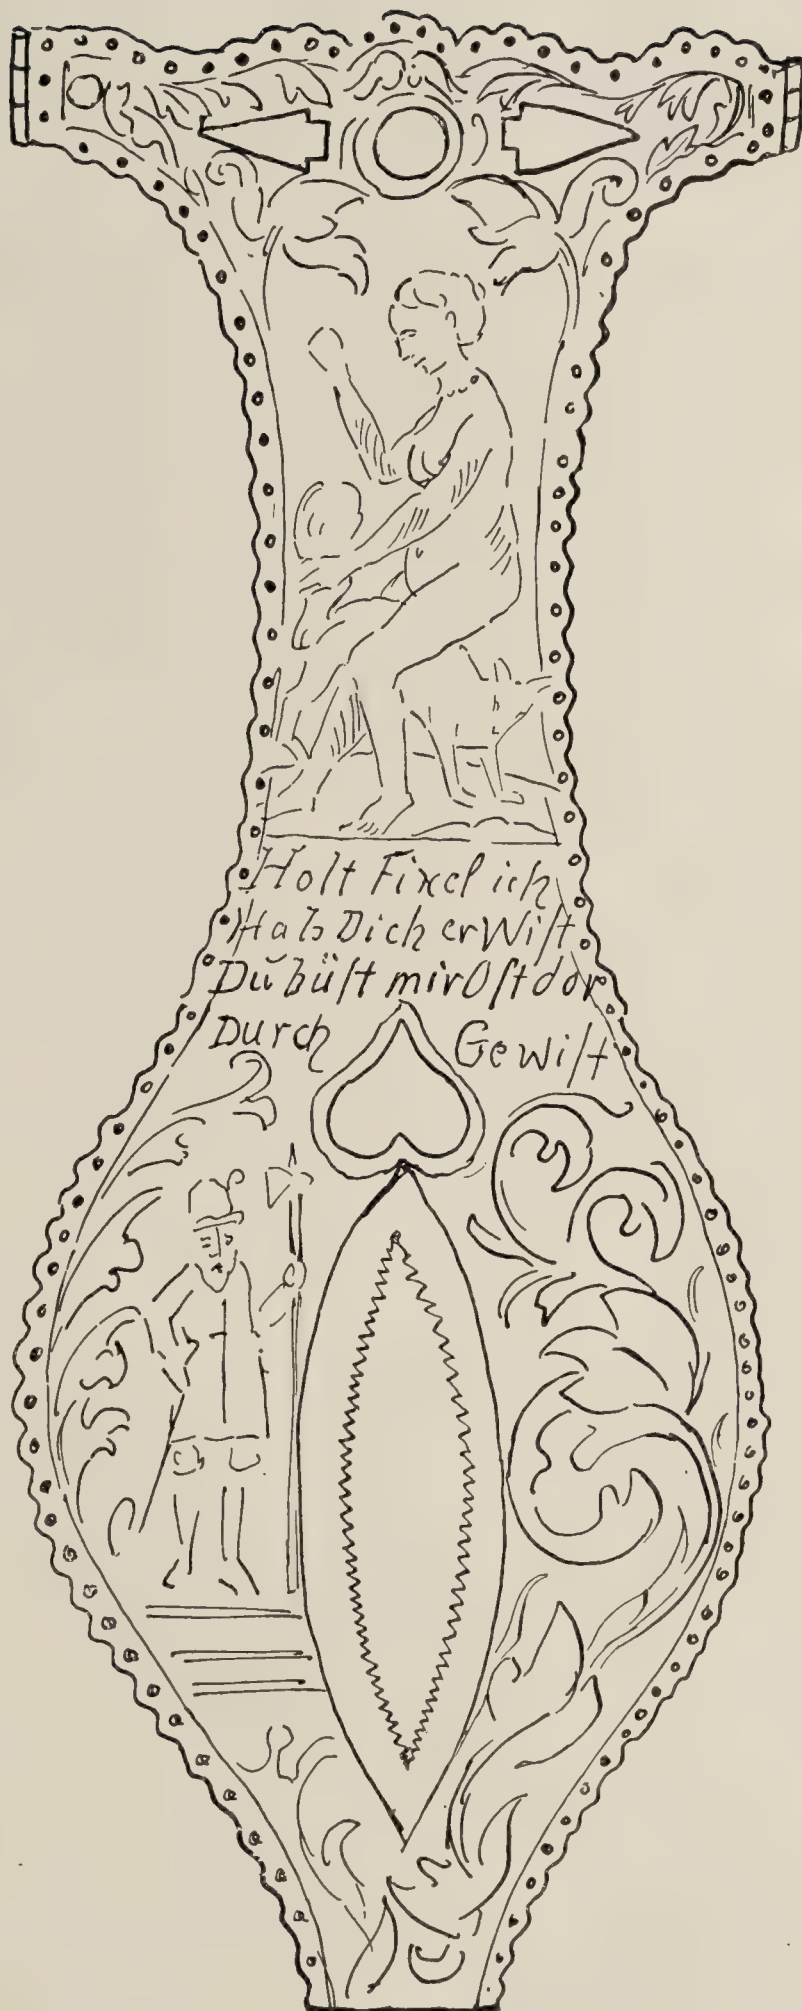 Holt Fixel ich
Hab Dich erWiſt
Dŭ büſt mir Oft dor
Durch Gewiſt